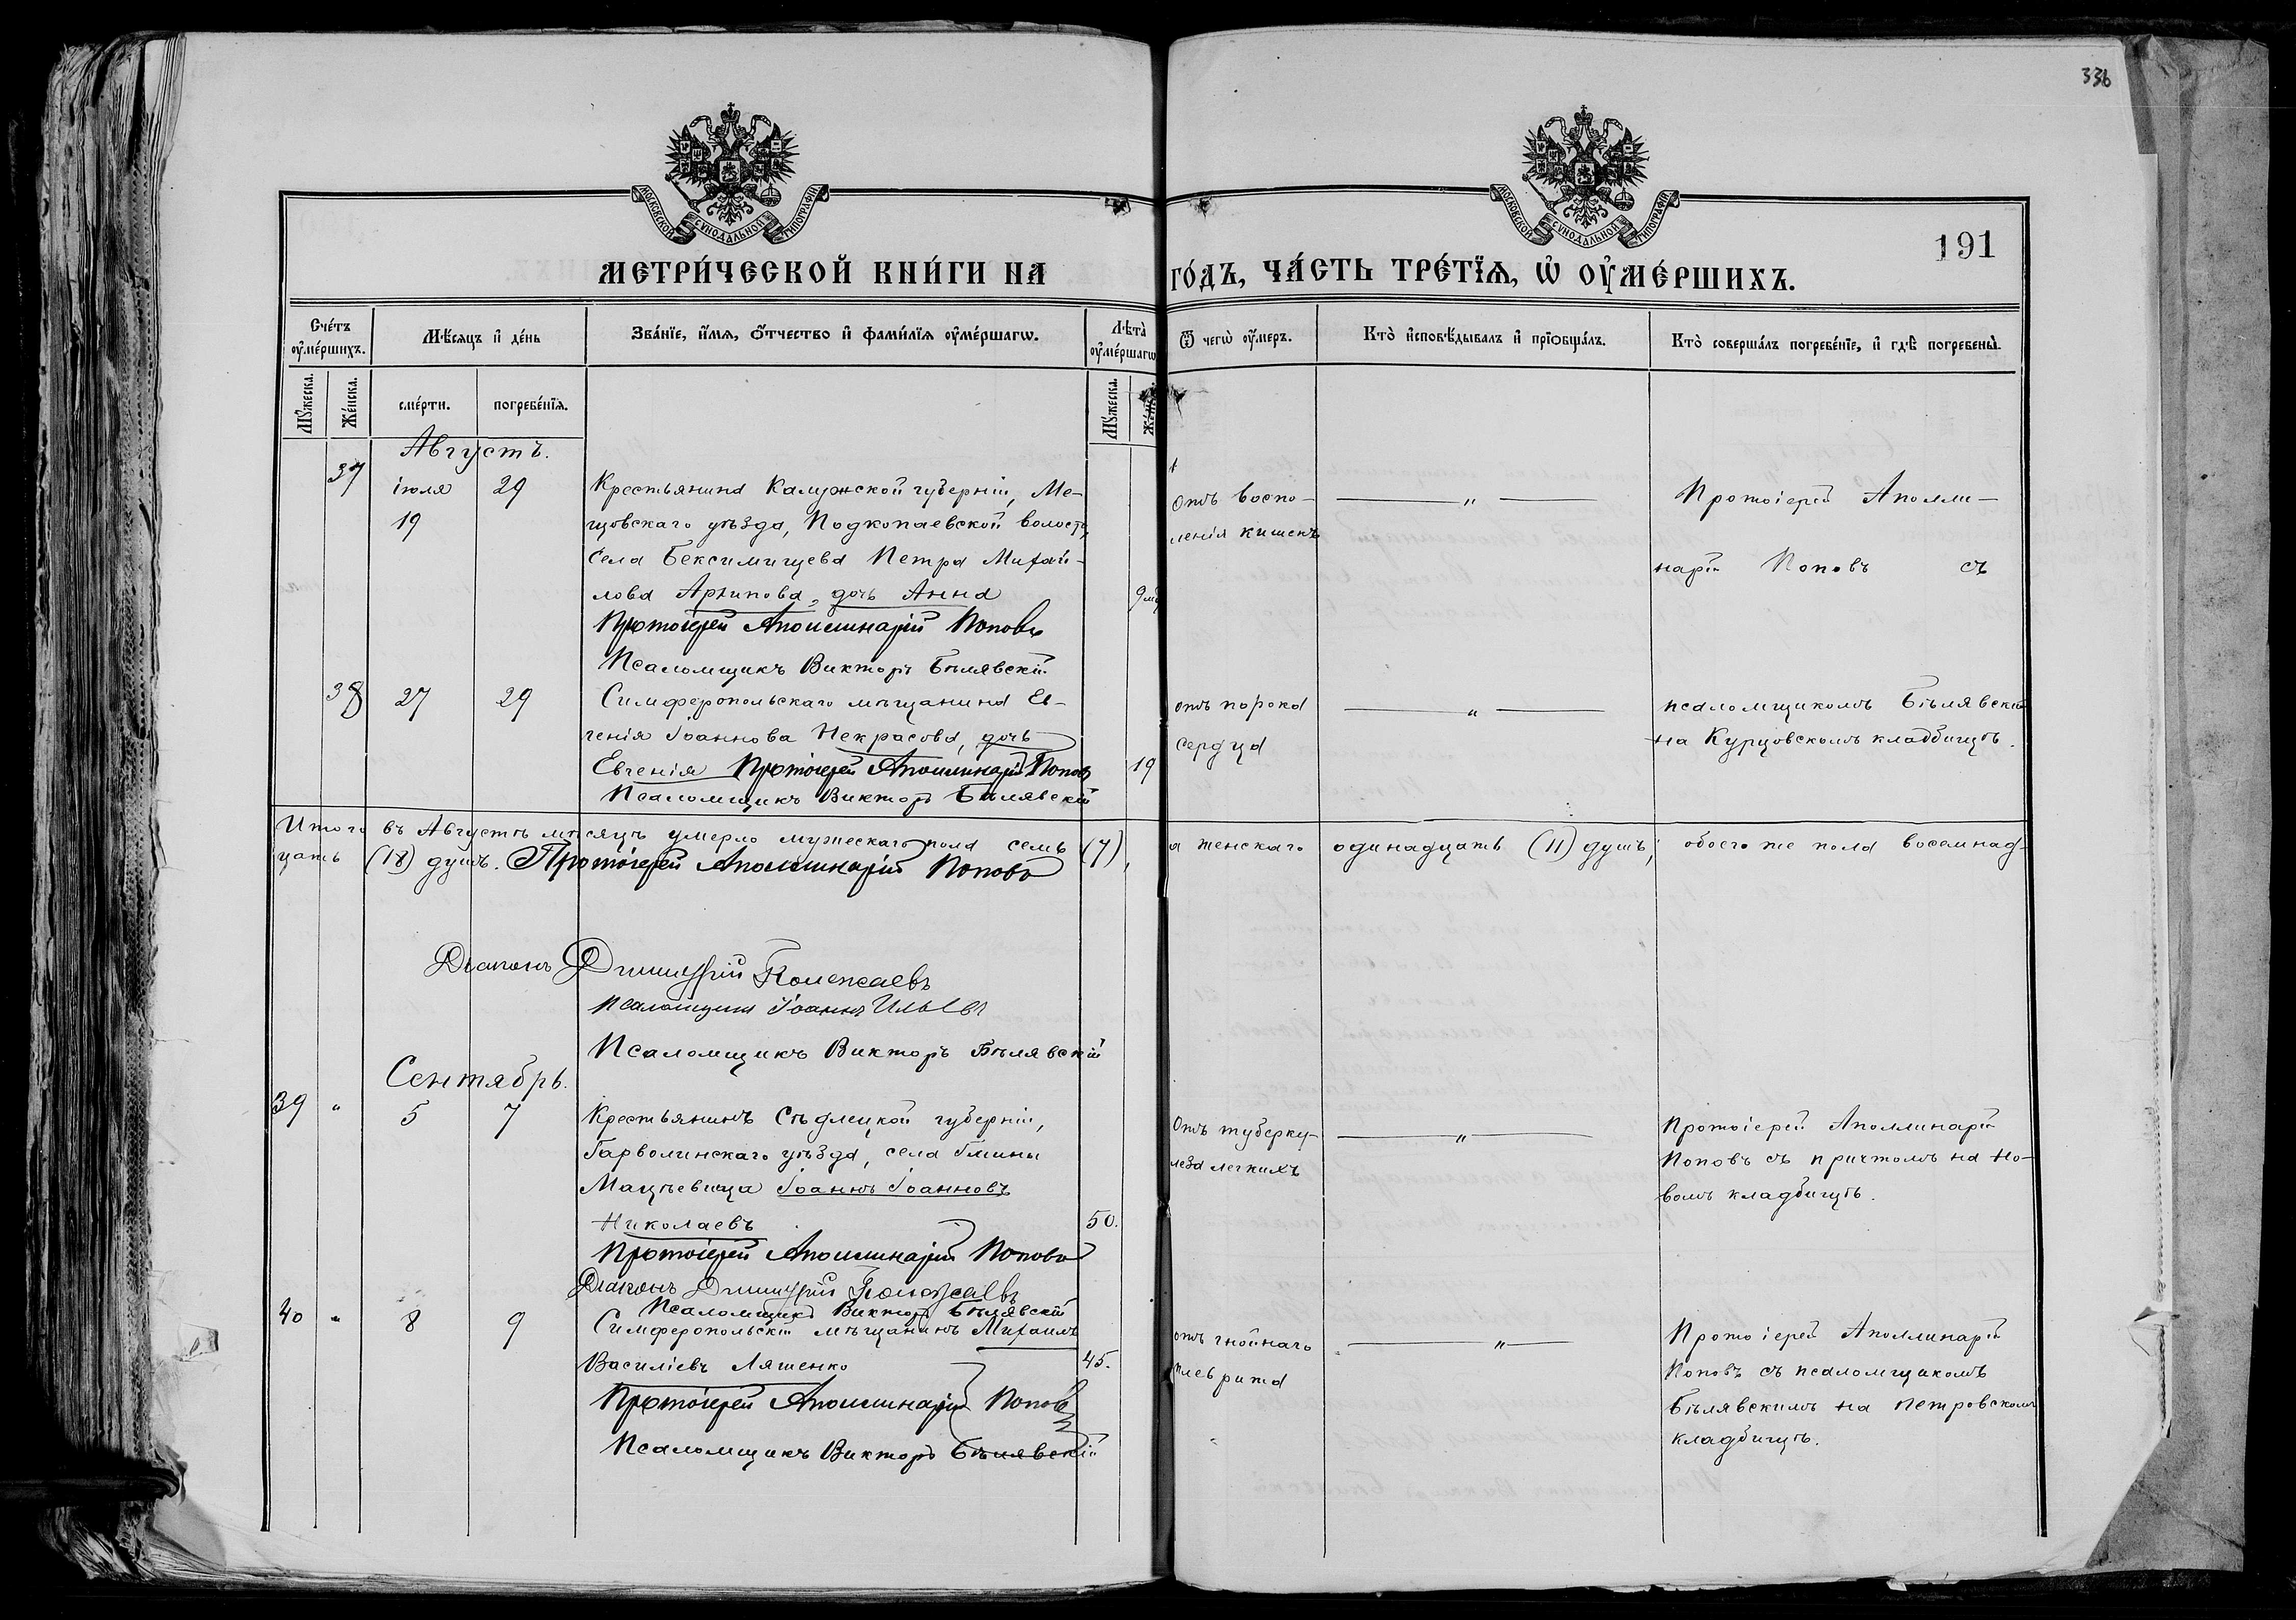 336
МОСКОВСКОЙ СѴНОДАЛЬНОЙ ТИПОГРАФІИ
МОСКОВСКОЙ СѴНОДАЛЬНОЙ ТИПОГРАФІИ
191
МЕТРИ́ЧЕСКОЙ КНИ́ГИ НА ГО́ДЪ, ЧА́СТЬ ТРЕ́ТЇѦ, Ѡ҆ ОУ҆МЕ́РШИХЪ.
Сче́тъ оу҆ме́ршихъ.
Мѣ́сяцъ и҆ де́нь
Зва́нїе, и҆́мѧ, о҆́тчество и҆ фами́лїѧ оу҆ме́ршагѡ.
Лѣта̀ оу҆ме́ршагѡ
Ѿ чегѡ̀ оу҆́меръ.
Кто̀ и҆сповѣ́дывалъ и҆ прїѡбща́лъ.
Кто̀ соверша́лъ погребе́нїе, и҆ гдѣ̀ погребены̀.
Мꙋ́жеска.
Же́нска.
сме́рти.
погребе́нїѧ.
Мꙋ́жеска.
Же́нска.
Августъ.
37 іюля 29 Крестьянина Калужской губерніи, Ме-
19 щовскаго уѣзда, Подкопаевской волости,
села Бексимищева Петра Михай-
лова Архипова, дочь Анна
Протоіерей Аполлинарій Поповъ
Псаломщикъ Викторъ Бѣлявскій
9 м
Отъ воспо-
ленія кишекъ
— " —
Протоіерей Аполли-
нарій Поповъ съ
38 27 29 Симферопольскаго мѣщанина Ев-
генія Іоаннова Некрасова, дочь
Евгенія Протоіерей Аполлинарій Поповъ
Псаломщикъ Викторъ Бѣлявскій
19
отъ порока
сердца
— " —
псаломщикомъ Бѣлявским
на Курцовскомъ кладбищѣ.
Итого въ Августѣ мѣсяцѣ умерло мужескаго пола семь (7), а женскаго одинадцать (11) душъ; обоего же пола восемнад-
цать (18) душъ. Протоіерей Аполлинарій Поповъ
Діаконъ Димитрій Полежаевъ
Псаломщикъ Іоаннъ Ильевъ
Псаломщикъ Викторъ Бѣлявскій
Сентябрь.
39 " 5 7 Крестьянинъ Сѣдлецкой губерніи,
Гарволинскаго уѣзда, села Гмины
Мацѣевица Іоаннъ Іоанновъ
Николаевъ 50.
Протоіерей Аполлинарій Поповъ
Діаконъ Димитрій Полежаевъ
Псаломщикъ Викторъ Бѣлявскій
Отъ туберку-
леза легкихъ
— " —
Протоіерей Аполлинарій
Поповъ съ причтомъ на Но-
вомъ кладбищѣ.
40 " 8 9 Симферопольскій мѣщанинъ Михаилъ
Василіевъ Ляшенко 45.
Протоіерей Аполлинарій Поповъ
Псаломщикъ Викторъ Бѣлявскій
отъ гнойнаго
плеврита
— " —
Протоіерей Аполлинарій
Поповъ съ псаломщикомъ
Бѣлявскимъ на Петровскомъ
кладбищѣ.